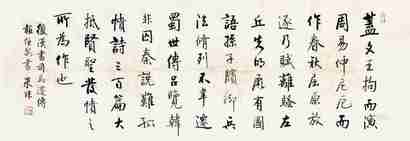 蓋文王拘而演
周易仲尼厄而
作春秋屈原放
逐乃賦離騷左
丘失明厥有國
語孫子臏腳兵
法脩列不韋遷
蜀世傳呂覽韓
非囚秦說難孤
憤詩三百篇大
抵賢聖發憤之
所為作也
漢書司馬遷傳
報任安書